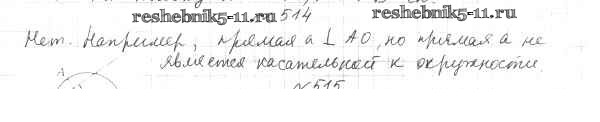 reshebnik5-11.ru 514 reshebnik5-11.ru
Нет. Например, прямая а ⊥ АО, но прямая а не
является касательной к окружности.
А
№515